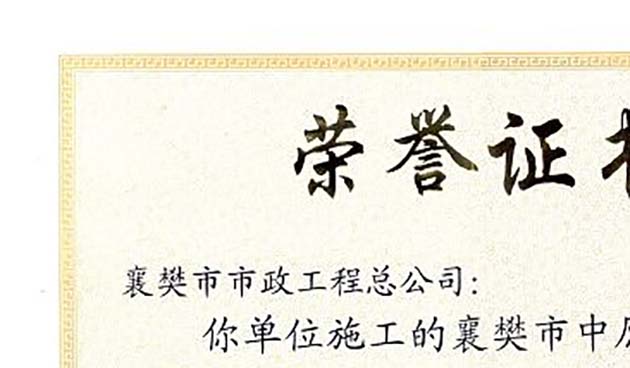 荣誉证
襄樊市市政工程总公司：
你单位施工的襄樊市中